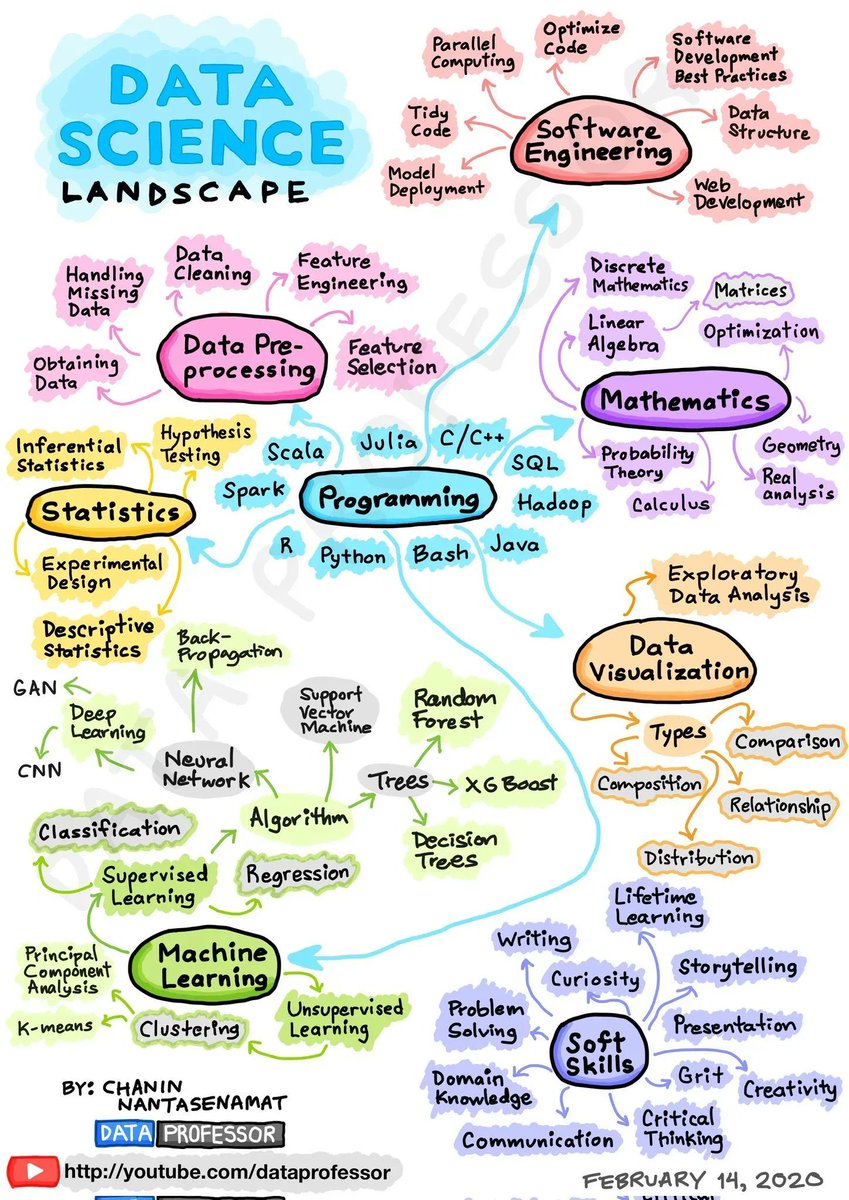 DATA
SCIENCE
LANDSCAPE
Parallel
Computing
Optimize
Code
Software
Development
Best Practices
Tidy
Code
Software
Engineering
Data
Structure
Model
Deployment
Web
Development
Handling
Missing
Data
Data
Cleaning
Feature
Engineering
Data Pre-
processing
Obtaining
Data
Feature
Selection
Discrete
Mathematics
Matrices
Linear
Algebra
Optimization
Mathematics
Probability
Theory
Calculus
Geometry
Real
analysis
Inferential
Statistics
Hypothesis
Testing
Statistics
Experimental
Design
Descriptive
Statistics
Scala
Julia
C/C++
SQL
Spark
Programming
Hadoop
R
Python
Bash
Java
Exploratory
Data Analysis
Data
Visualization
Types
Comparison
Composition
Relationship
Distribution
Back-
Propagation
GAN
Deep
Learning
CNN
Neural
Network
Support
Vector
Machine
Random
Forest
Trees
XGBoost
Algorithm
Decision
Trees
Classification
Supervised
Learning
Regression
Machine
Learning
Principal
Component
Analysis
K-means
Clustering
Unsupervised
Learning
Lifetime
Learning
Writing
Curiosity
Storytelling
Problem
Solving
Soft
Skills
Presentation
Domain
Knowledge
Grit
Creativity
Communication
Critical
Thinking
BY: CHANIN
NANTASENAMAT
DATA PROFESSOR
http://youtube.com/dataprofessor
FEBRUARY 14, 2020
DATA PROFESSOR